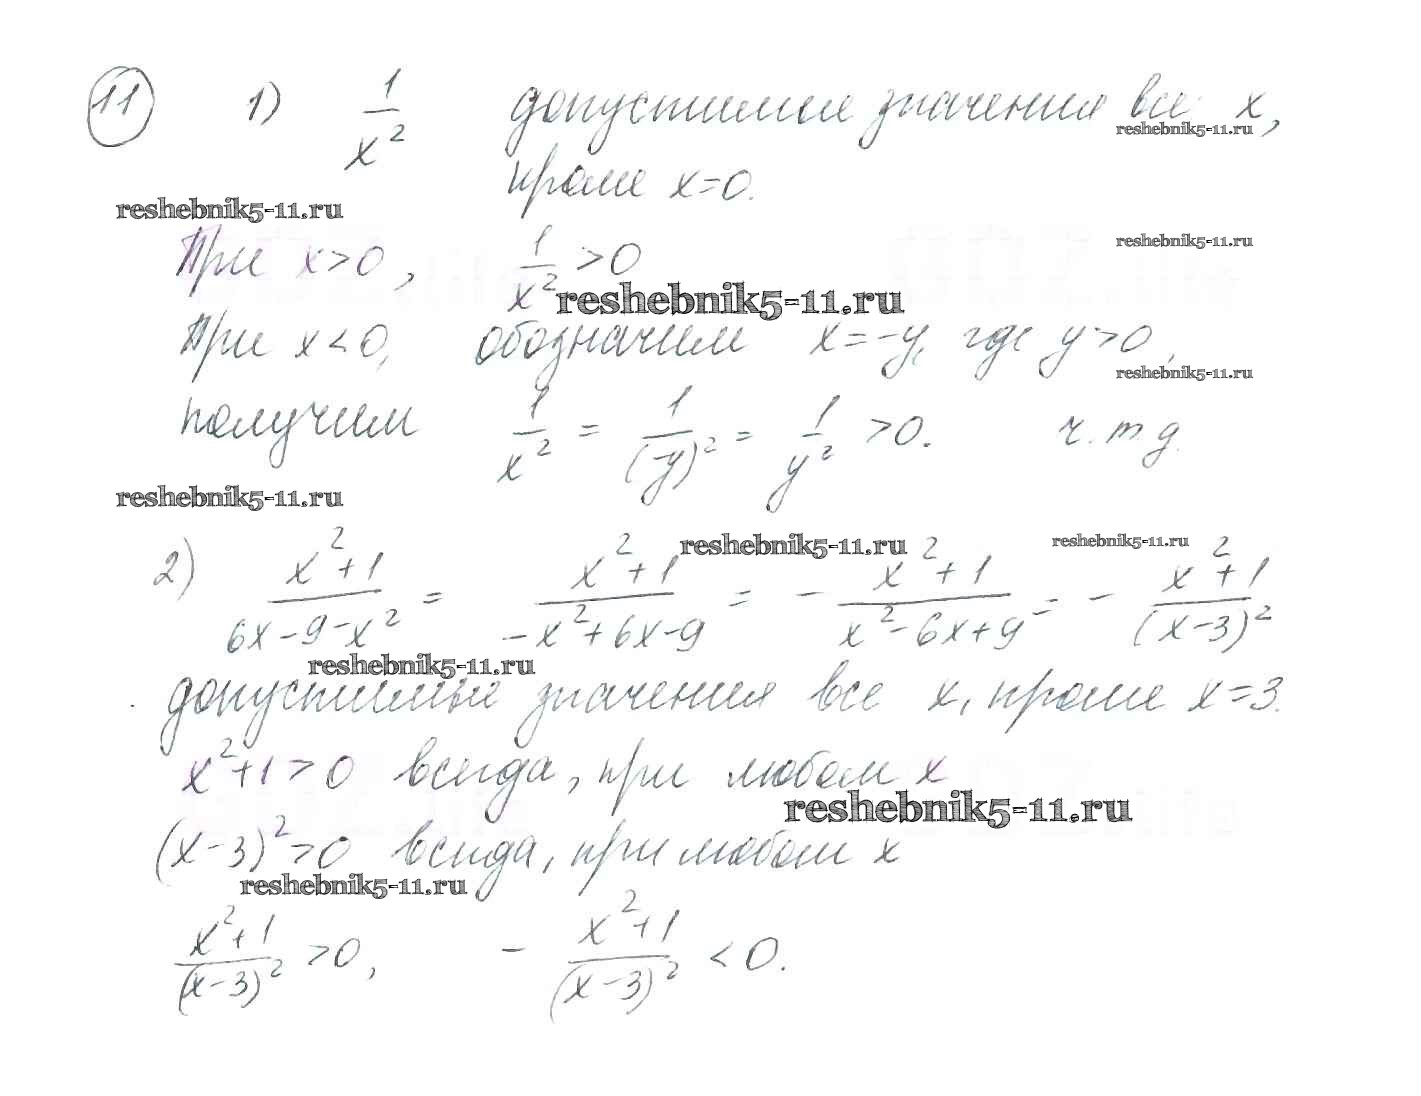 11 1) 1/x² допустимые значения все x, reshebnik5-11.ru
кроме x=0.
reshebnik5-11.ru
При x>0, 1/x² >0 reshebnik5-11.ru
reshebnik5-11.ru
При x<0, обозначим x=-y, где y>0,
reshebnik5-11.ru
получим 1/x² = 1/(-y)² = 1/y² >0. ч.т.д.
reshebnik5-11.ru
reshebnik5-11.ru reshebnik5-11.ru
2) (x²+1)/(6x-9-x²) = (x²+1)/(-x²+6x-9) = - (x²+1)/(x²-6x+9) = - (x²+1)/(x-3)²
reshebnik5-11.ru
допустимые значения все x, кроме x=3.
x²+1>0 всегда, при любом x
reshebnik5-11.ru
(x-3)²>0 всегда, при любом x
reshebnik5-11.ru
(x²+1)/(x-3)² >0, - (x²+1)/(x-3)² <0.